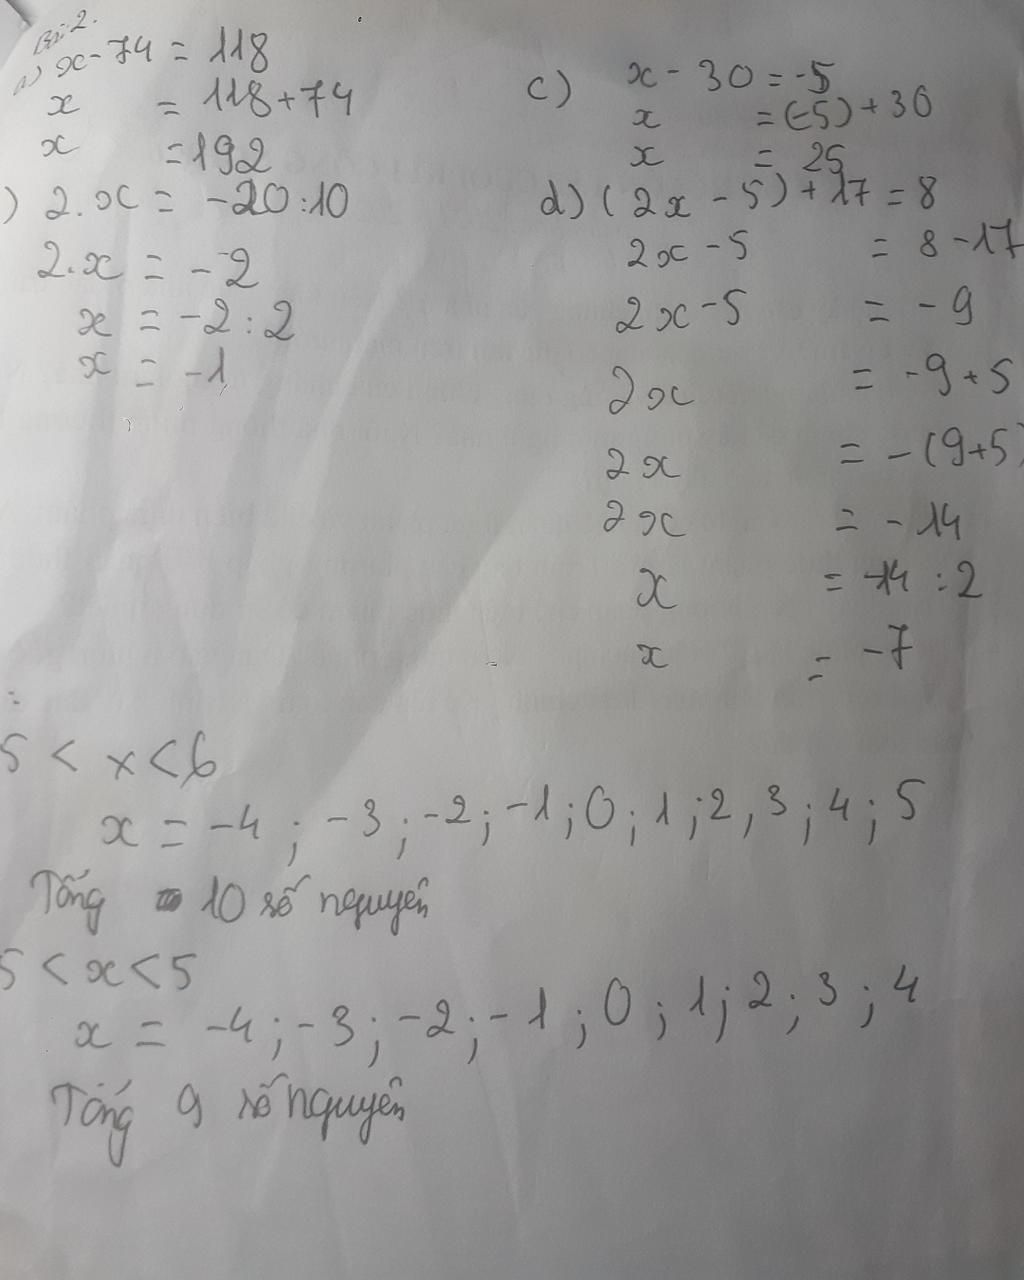 Bài 2.
a) x - 74 = 118
x = 118 + 74
x = 192
) 2.x = -20:10
2.x = -2
x = -2 : 2
x = -1
c) x - 30 = -5
x = (-5) + 30
x = 25
d) (2x - 5) + 17 = 8
2x - 5 = 8 - 17
2x - 5 = - 9
2x = -9 + 5
2x = - (9+5)
2x = - 14
x = -14 : 2
x = -7
5 < x < 6
x = -4 ; -3 ; -2 ; -1 ; 0 ; 1 ; 2 , 3 ; 4 ; 5
Tống 10 số nguyên
5 < x < 5
x = -4 ; -3 ; -2 ; -1 ; 0 ; 1 ; 2 ; 3 ; 4
Tống 9 số nguyên